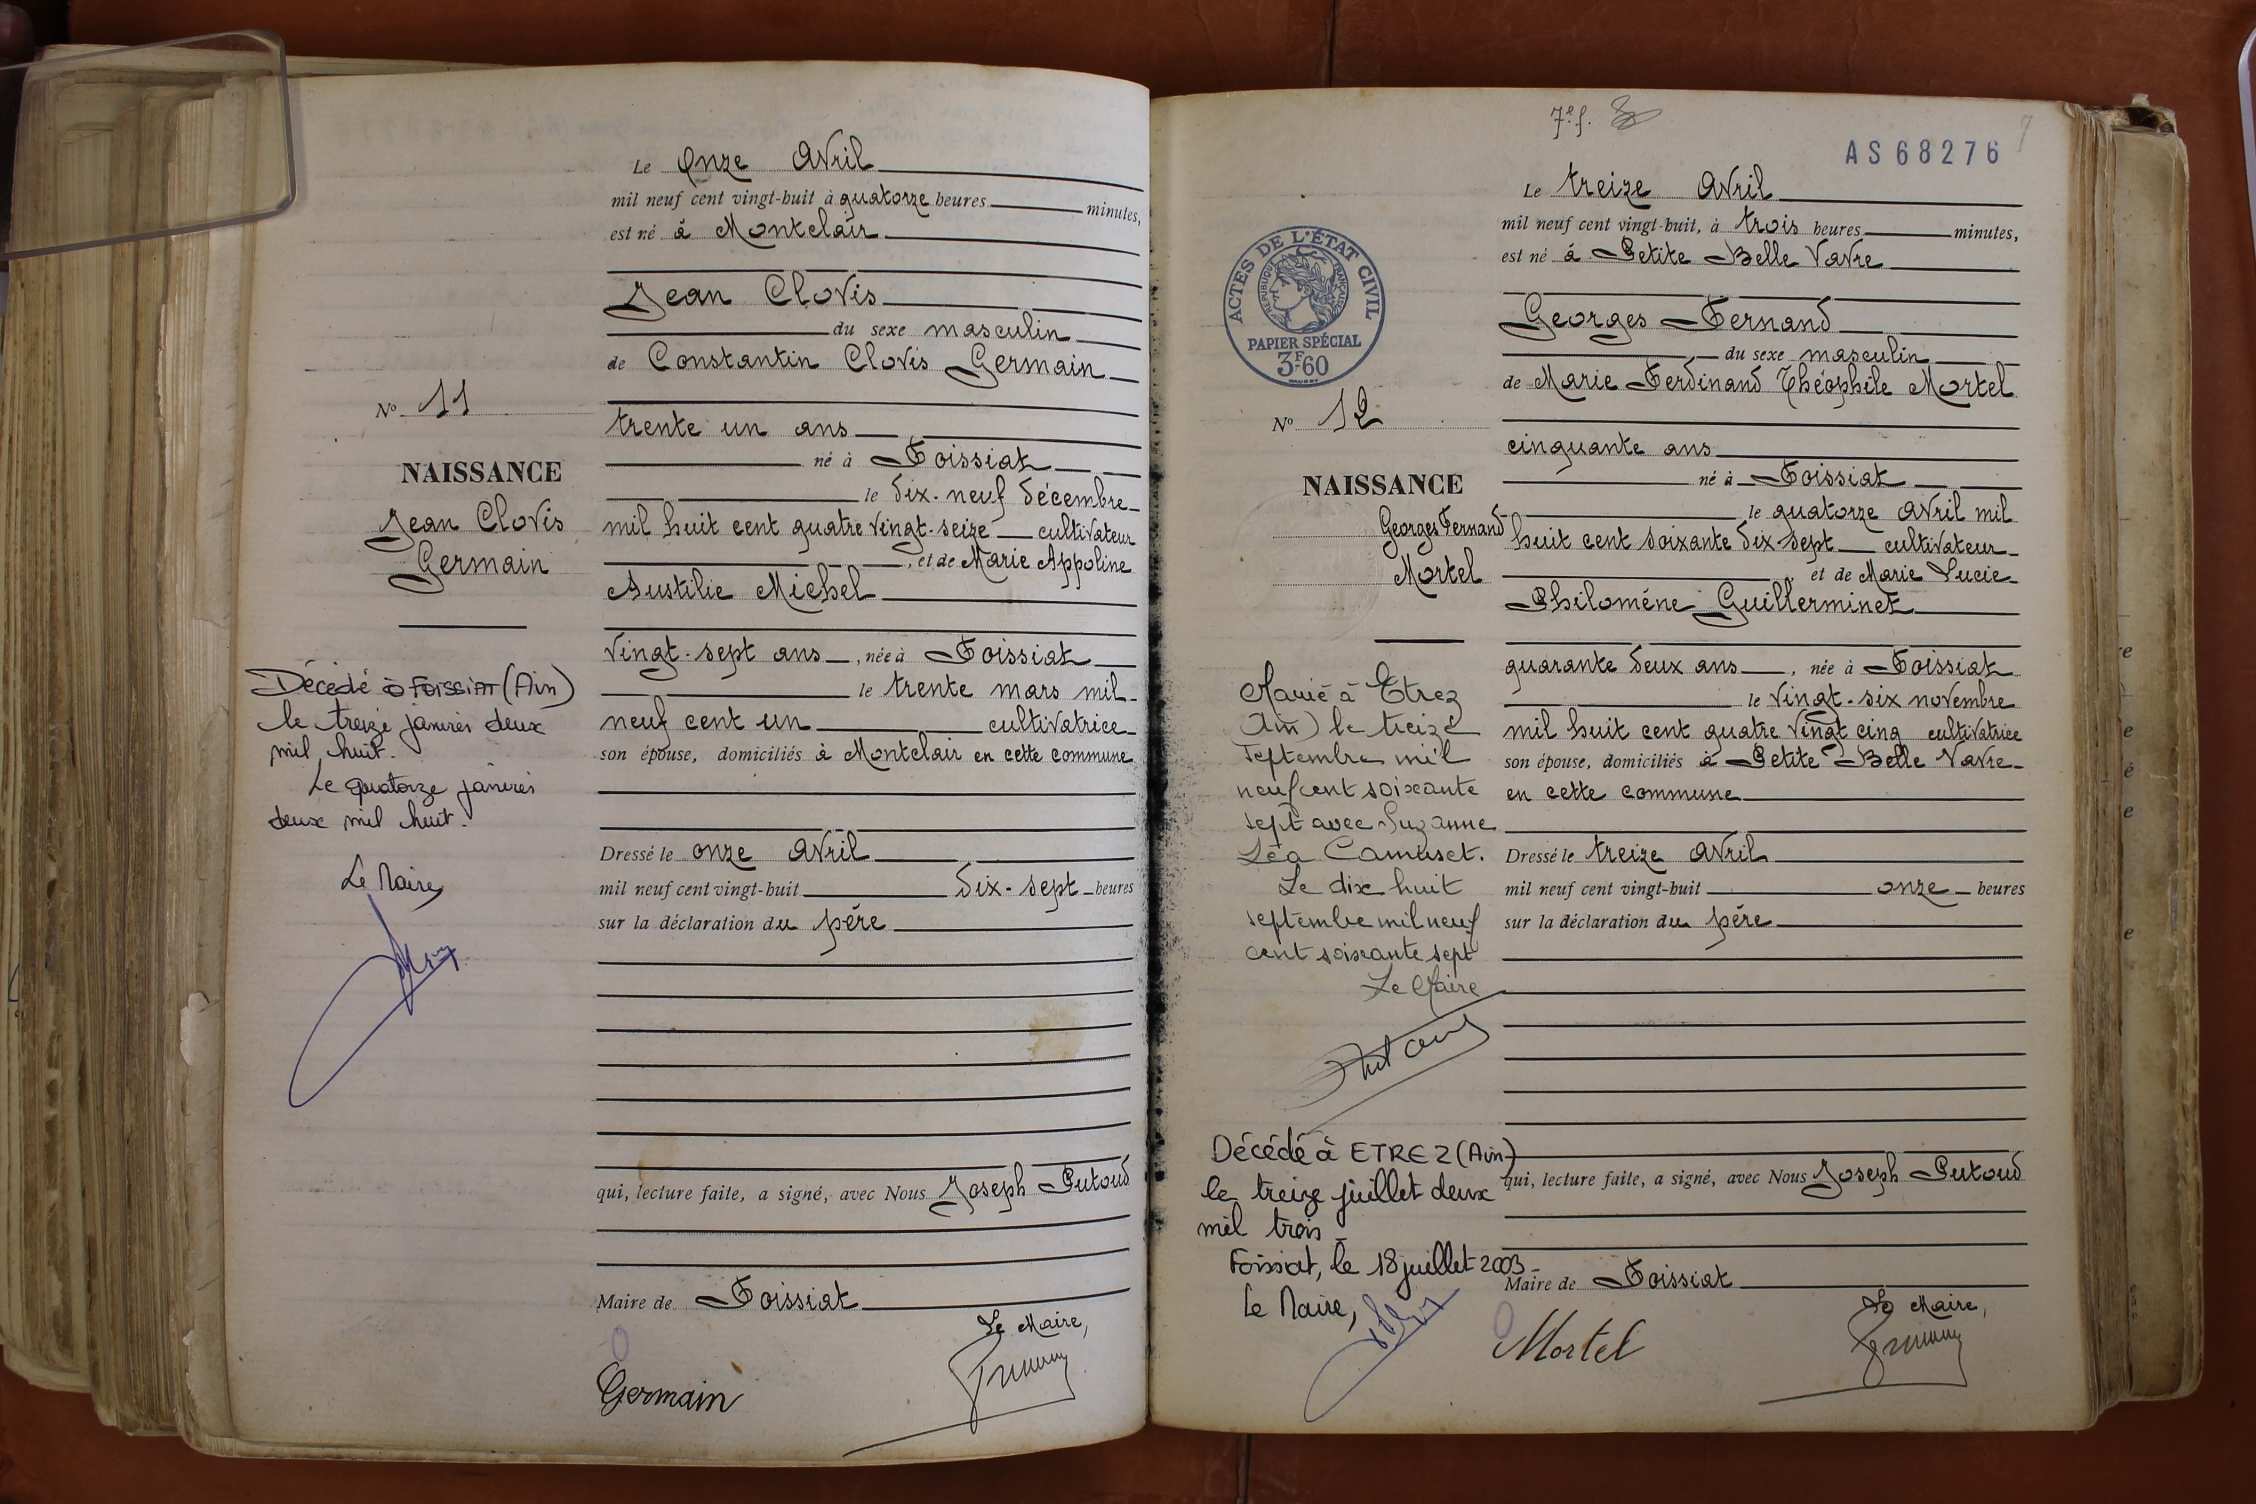 Le Onze Avril
mil neuf cent vingt-huit à quatorze heures minutes,
est né à Montclair
Jean Clovis
du sexe masculin
de Constantin Clovis Germain
Nº 11
trente un ans
né à Foissiat
NAISSANCE
le dix-neuf décembre
Jean Clovis
mil huit cent quatre vingt-seize cultivateur
Germain
, et de Marie Appoline
Austilie Michel
vingt-sept ans, née à Foissiat
Décédé à FOISSIAT (Ain)
le trente mars mil
le treize janvier deux
neuf cent un cultivatrice
mil huit.
son épouse, domiciliés à Montclair en cette commune
Le quatorze janvier
deux mil huit.
Dressé le onze Avril
Le Maire
mil neuf cent vingt-huit dix-sept heures
sur la déclaration du père
qui, lecture faite, a signé, avec Nous Joseph Putoud
Maire de Foissiat
Le Maire,
Germain
7e f.
AS68276
7
Le treize Avril
mil neuf cent vingt-huit, à trois heures minutes,
est né à Petite Belle Vavre
ACTES DE L'ÉTAT CIVIL
RÉPUBLIQUE FRANÇAISE
PAPIER SPÉCIAL
3F.60
Georges Fernand
du sexe masculin
de Marie Ferdinand Théophile Mortel
Nº 12
cinquante ans
né à Foissiat
NAISSANCE
le quatorze Avril mil
Georges Fernand
huit cent soixante dix-sept cultivateur
Mortel
, et de Marie Lucie
Philomène Guillerminet
quarante deux ans, née à Foissiat
le vingt-six novembre
mil huit cent quatre vingt cinq cultivatrice
son épouse, domiciliés à Petite Belle Vavre
en cette commune
Marié à Etrez
Ain) le treize
septembre mil
neuf cent soixante
sept avec Suzanne
Léa Camuset.
Le dix huit
septembre mil neuf
cent soixante sept
Le Maire
Dressé le treize Avril
mil neuf cent vingt-huit onze heures
sur la déclaration du père
Décédé à ETREZ (Ain)
le treize juillet deux
mil trois
Foissiat, le 18 juillet 2003
Le Maire,
qui, lecture faite, a signé, avec Nous Joseph Putoud
Maire de Foissiat
Le Maire,
Mortel